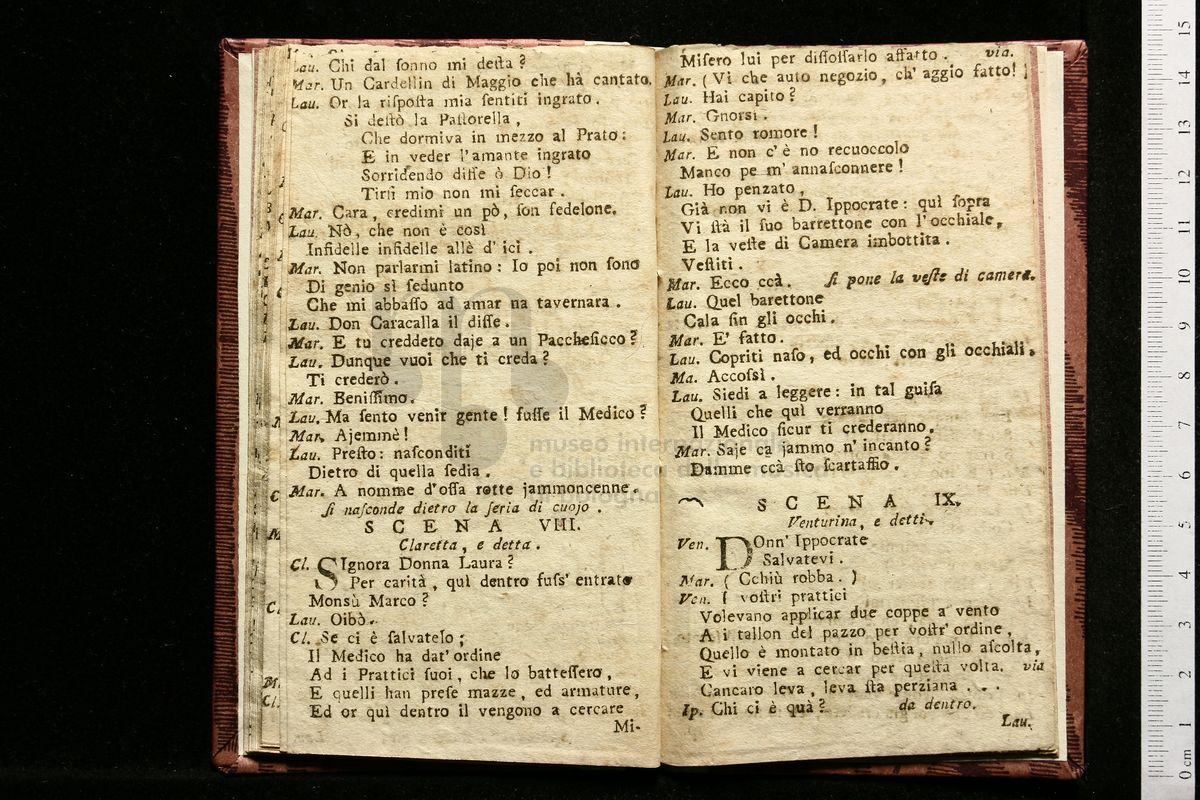 Lau. Chi dal ſonno mi deſta?
Mar. Un Cardellin di Maggio che hà cantato.
Lau. Or la riſpoſta mia ſentiti ingrato.
Si deſtò la Paſtorella,
Che dormiva in mezzo al Prato:
E in veder l'amante ingrato
Sorridendo diſſe ò Dio!
Tirſi mio non mi ſeccar.
Mar. Cara, credimi un pò, ſon fedelone.
Lau. Nò, che non è così
Infidelle infidelle allè d'ici.
Mar. Non parlarmi latino: Io poi non ſono
Di genio sì ſedunto
Che mi abbaſſo ad amar na tavernara.
Lau. Don Caracalla il diſſe.
Mar. E tu creddeto daje a un Paccheſicco?
Lau. Dunque vuoi che ti creda?
Ti crederò.
Mar. Beniſſimo.
Lau. Ma ſento venir gente! fuſſe il Medico?
Mar. Ajemmè!
Lau. Preſto: naſconditi
Dietro di quella ſedia.
Mar. A nomme d'oſſa rotte jammoncenne.
ſi naſconde dietro la ſeria di cuojo.
SCENA VIII.
Claretta, e detta.
Cl. SIgnora Donna Laura?
Per carità, quì dentro fuſs' entrato
Monsù Marco?
Lau. Oibò.
Cl. Se ci è ſalvatelo;
Il Medico ha dat' ordine
Ad i Prattici ſuoi, che lo batteſſero,
E quelli han preſe mazze, ed armature,
Ed or quì dentro il vengono a cercare
Mi-
Miſero lui per diſſoſſarlo affatto. via.
Mar. (Vi che auto negozio, ch' aggio fatto!)
Lau. Hai capito?
Mar. Gnorsì.
Lau. Sento romore!
Mar. E non c'è no recuoccolo
Manco pe m' annaſconnere!
Lau. Ho penzato,
Già non vi è D. Ippocrate: quì ſopra
Vi ſtà il ſuo barrettone con l'occhiale,
E la veſte di Camera imbottita.
Veſtiti.
Mar. Ecco ccà. ſi pone la veſte di camera.
Lau. Quel barettone
Cala ſin gli occhi.
Mar. E' fatto.
Lau. Copriti naſo, ed occhi con gli occhiali.
Ma. Accoſsì.
Lau. Siedi a leggere: in tal guiſa
Quelli che quì verranno
Il Medico ſicur ti crederanno.
Mar. Saje ca jammo n' incanto?
Damme ccà ſto ſcartaffio.
SCENA IX.
Venturina, e detti.
Ven. DOnn' Ippocrate
Salvatevi.
Mar. (Cchiù robba.)
Ven. I voſtri prattici
Volevano applicar due coppe a vento
A i tallon del pazzo per voſtr' ordine,
Quello è montato in beſtia, nullo aſcolta,
E vi viene a cercar per queſta volta. via
Cancaro leva, leva ſta perziana...
Ip. Chi ci è quà? da dentro.
Lau.
museo internazionale
e biblioteca della musica
di bologna
0 cm 1 2 3 4 5 6 7 8 9 10 11 12 13 14 15